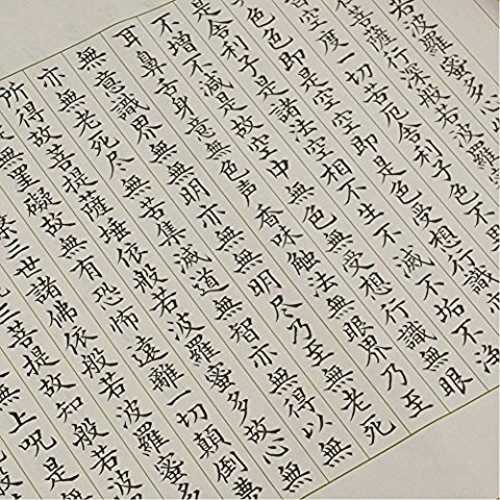 若波羅蜜多心
菩薩行深般若波羅
皆空度一切苦厄舍利子色不
色色即是空空即是色受想行識
是舍利子是諸法空相不生不滅不垢不
不增不減是故空中無色無受想行識無眼
耳鼻舌身意無色声香味触法無眼界乃至
無意識界無無明亦無無明尽乃至無老死
亦無老死尽無苦集滅道無智亦無得以無
所得故菩提薩埵依般若波羅蜜多故心無
無罣礙故無有恐怖遠離一切顛倒夢
三世諸佛依般若波羅蜜多
三菩提故知般若
無上呪是